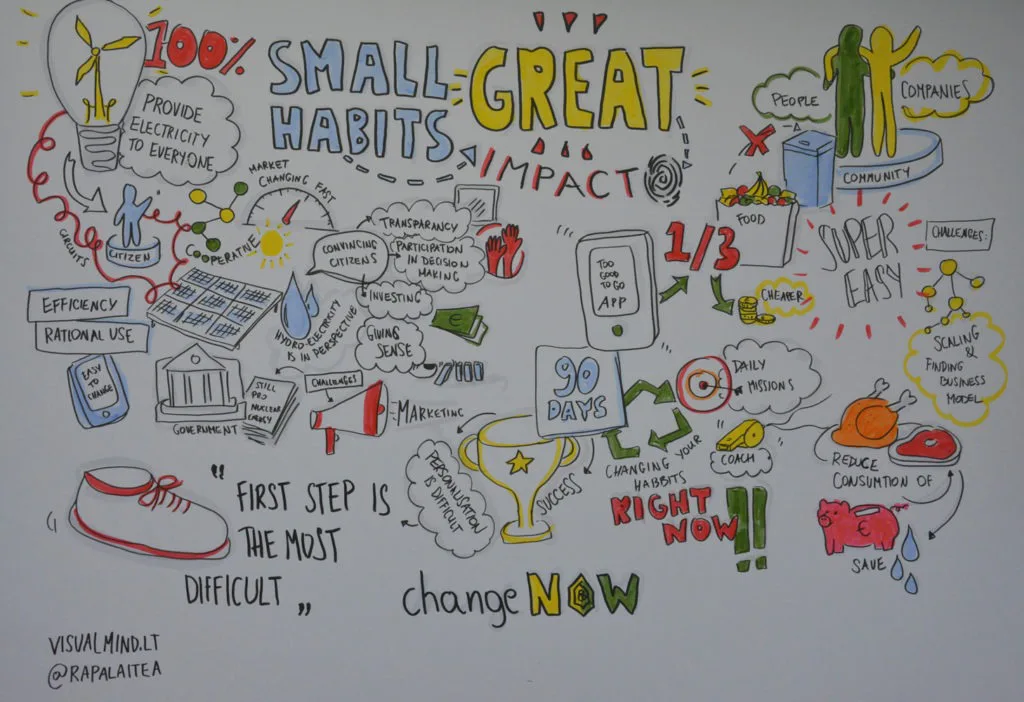 100%
PROVIDE
ELECTRICITY
TO EVERYONE
SMALL
HABITS
GREAT
IMPACT
PEOPLE
COMPANIES
COMMUNITY
MARKET
CHANGING FAST
CIRCUITS
CITIZEN
COOPERATIVE
CONVINCING
CITIZENS
TRANSPARANCY
PARTICIPATION
IN DECISION
MAKING
INVESTING
GIVING
SENSE
€
HYDRO-ELECTRICITY
IS IN PERSPECTIVE
EFFICIENCY
RATIONAL USE
EASY
TO
CHANGE
GOVERNMENT
STILL
PRO
NUCLEAR
ENERGY
CHALLENGES
MARKETING
TOO
GOOD
TO GO
APP
1/3
FOOD
CHEAPER
SUPER
EASY
CHALLENGES:
SCALING
&
FINDING
BUSINESS
MODEL
90
DAYS
DAILY
MISSIONS
COACH
CHANGING YOUR
HABBITS
RIGHT
NOW!!
SUCCESS
PERSONALISATION
IS DIFFICULT
REDUCE
CONSUMTION OF
€
SAVE
"FIRST STEP IS
THE MOST
DIFFICULT„
changeNOW
VISUALMIND.LT
@RAPALAITEA